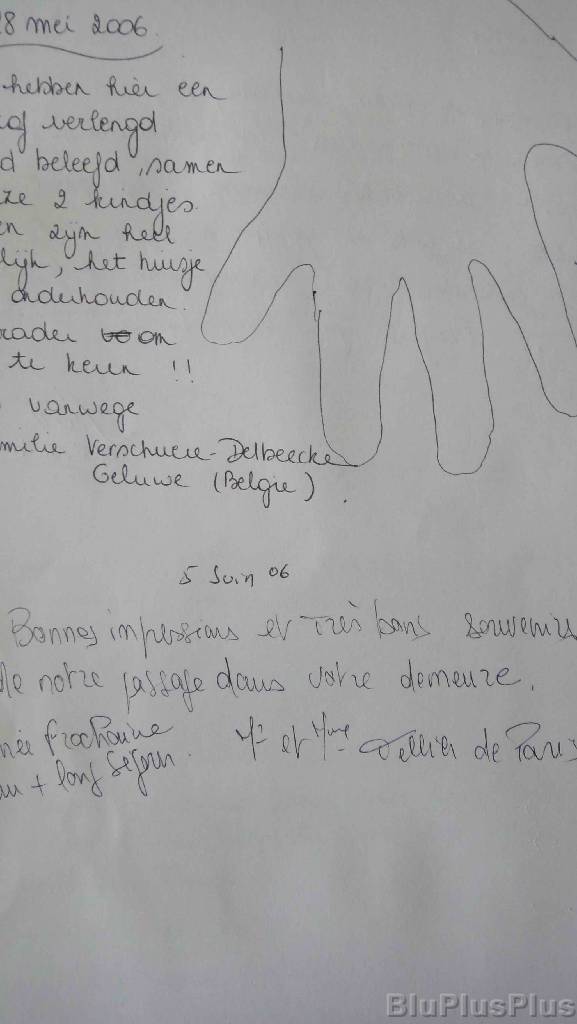 28 mei 2006.
hebben hier een
verlengd
d beleefd, samen
ze 2 kindjes.
en zijn heel
lijk, het huisje
onderhouden.
rader om
te keren !!
vanwege
milie Verschuere-Delbeecke
Geluwe (Belgie).
5 Juin 06
Bonnes impressions et Très bons souvenirs
de notre passage dans votre demeure.
née prochaine Mr et Mme Tellier de Paris
un + long séjour.
BluPlusPlus